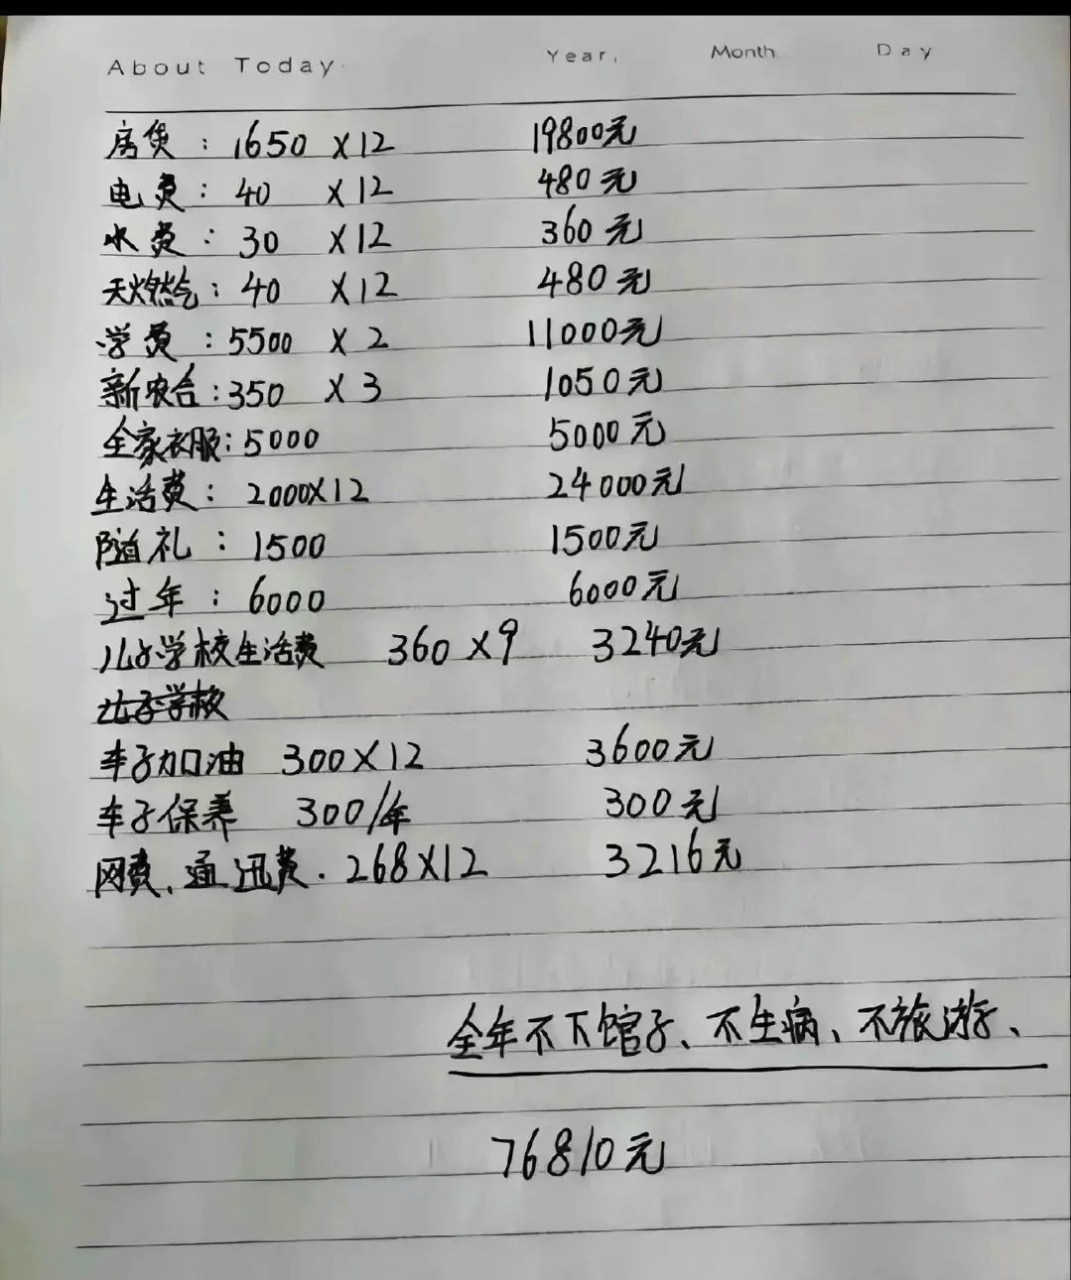 About Today Year. Month Day
房贷：1650 ×12 19800元
电费：40 ×12 480元
水费：30 ×12 360元
天燃气：40 ×12 480元
学费：5500 ×2 11000元
新农合：350 ×3 1050元
全家衣服：5000 5000元
生活费：2000×12 24000元
随礼：1500 1500元
过年：6000 6000元
儿子学校生活费 360×9 3240元
儿子学校
车子加油 300×12 3600元
车子保养 300/年 300元
网费、通讯费.268×12 3216元
全年不下馆子、不生病、不旅游、
76810元